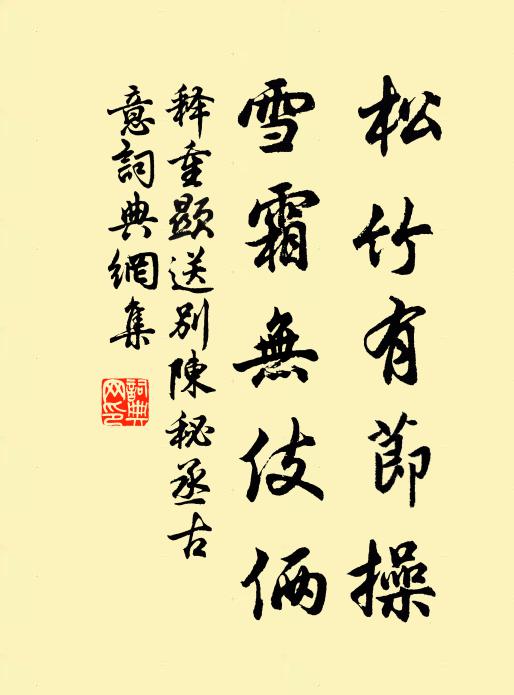 松竹有節操
雪霜無伎倆
释重顯送别陳秘丞古
意詞典網集
詞典
网印